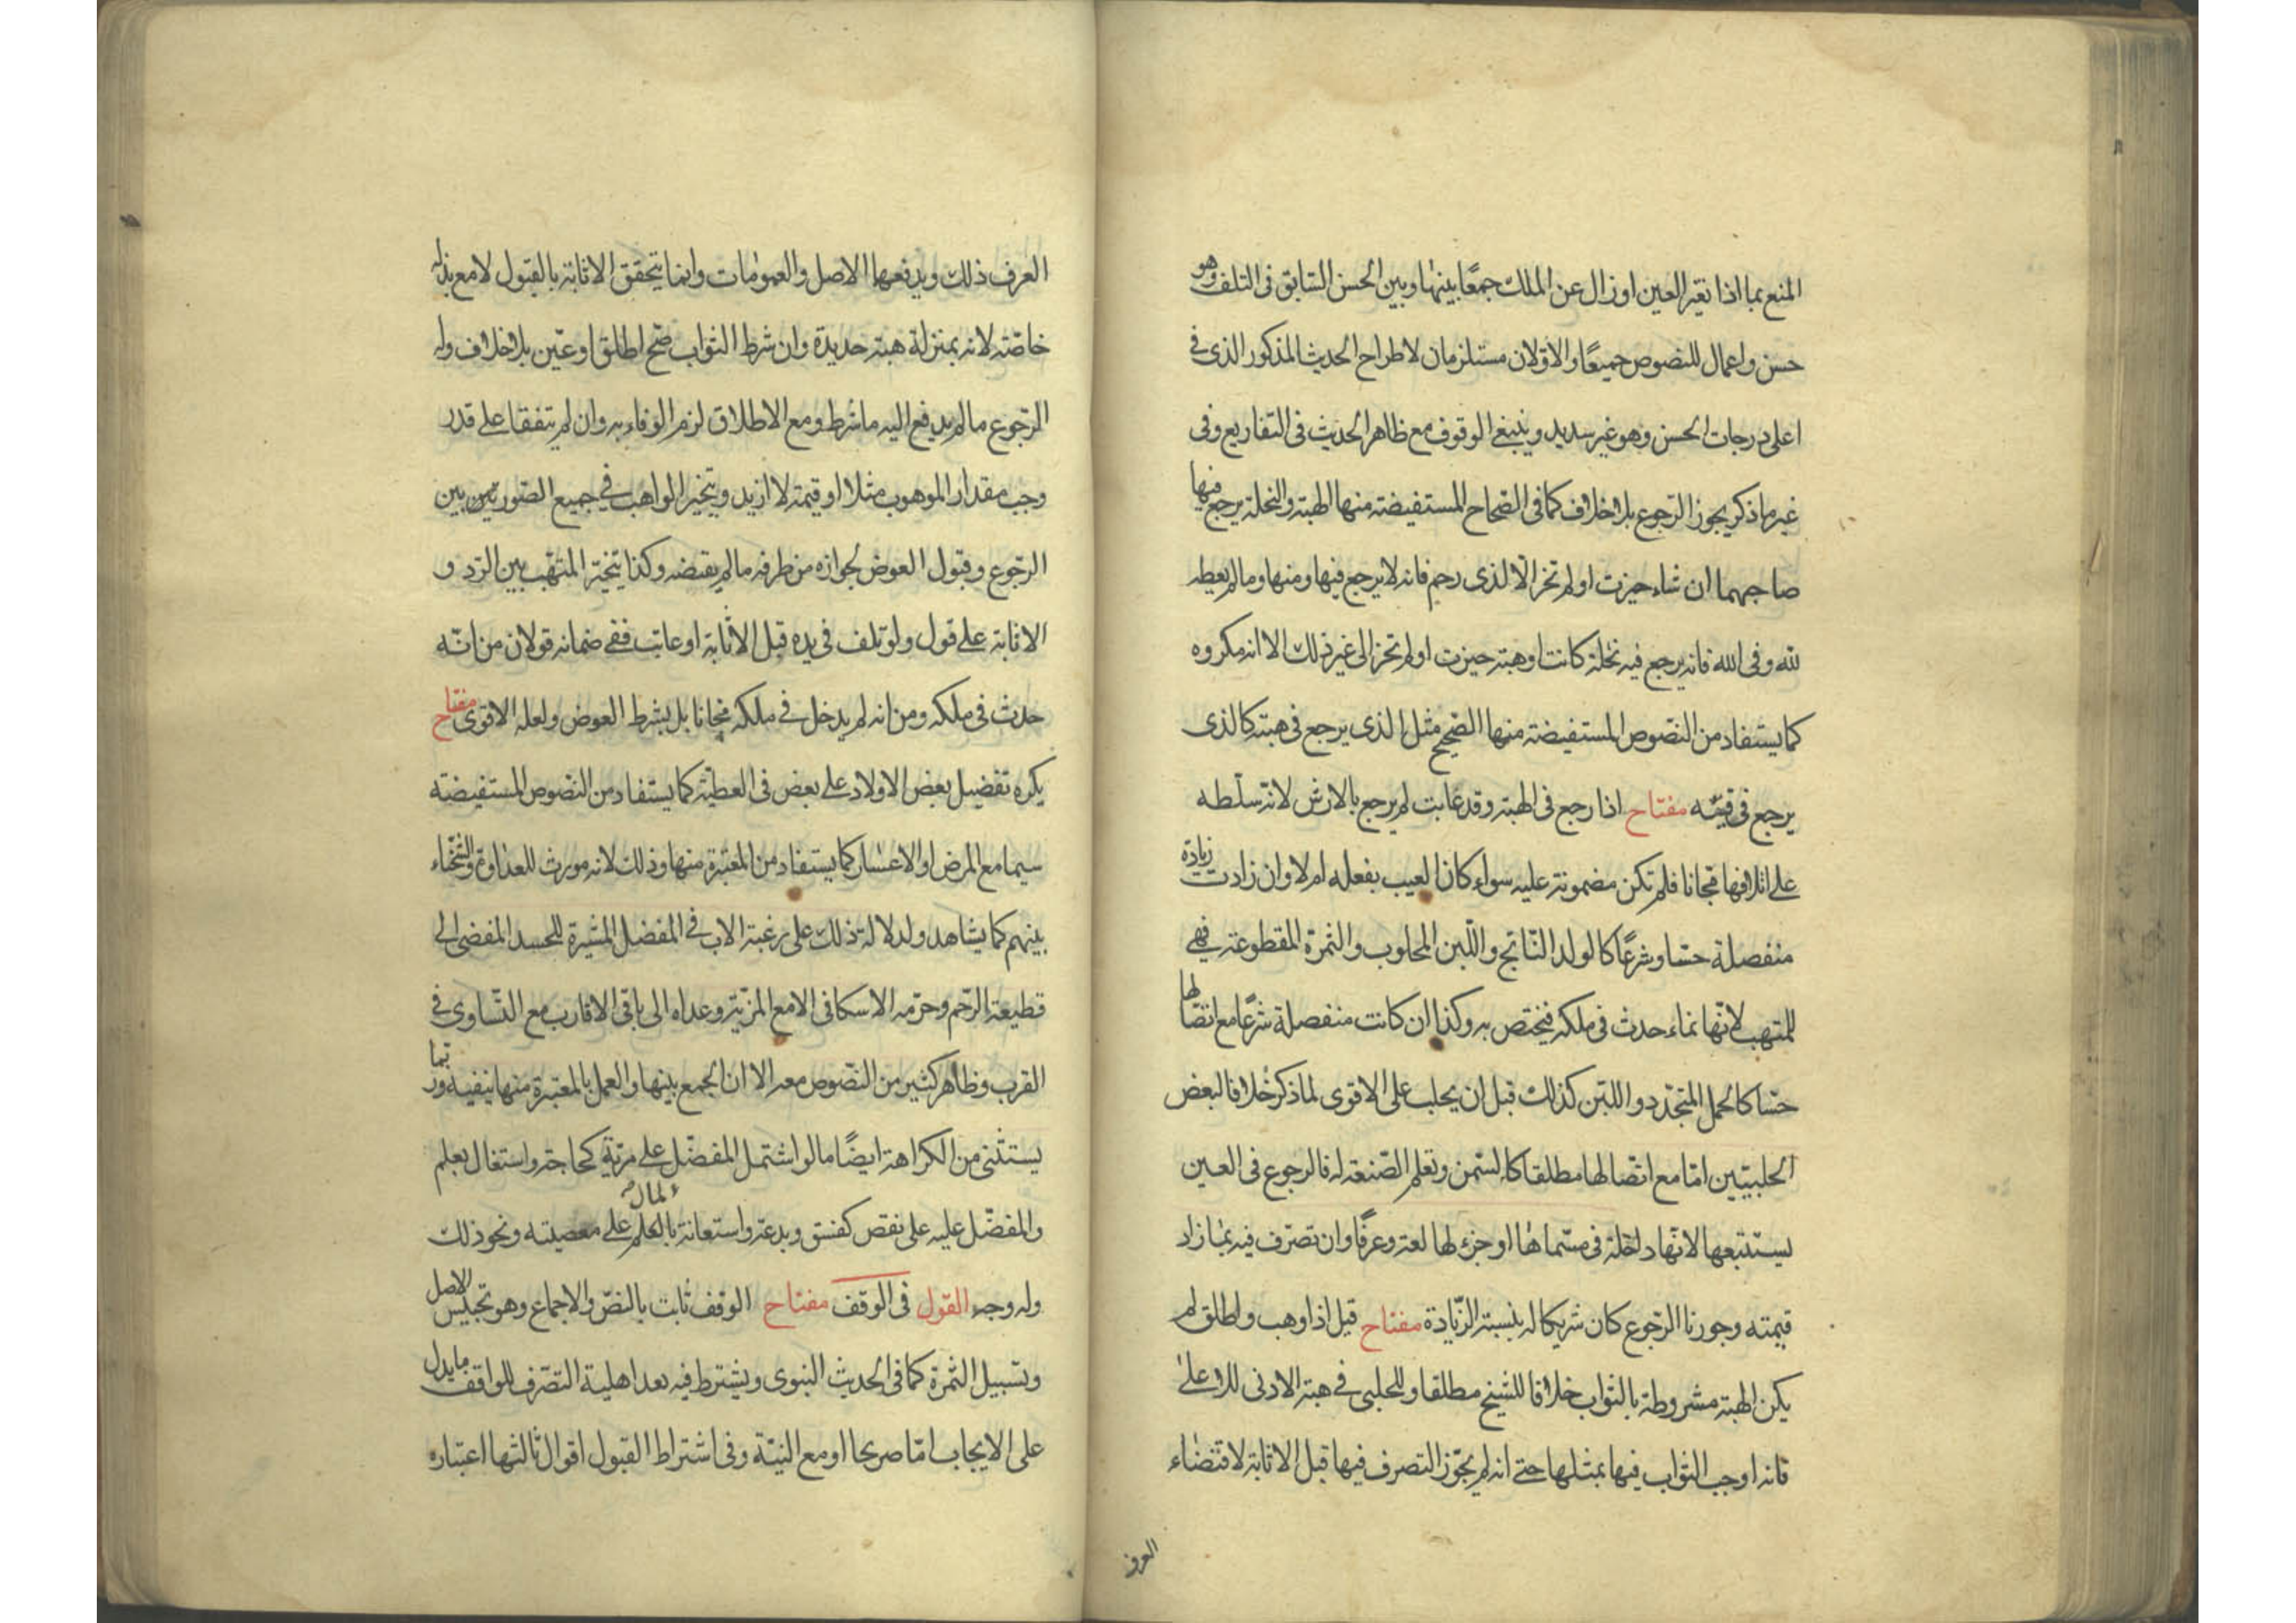 المنع بما اذا تغير العين او زال عن الملك جمعًا بينها وبين الحسن السابق فى التلف وهو
حسن واعمال للنصوص جميعًا والاوّلان مستلزمان لاطراح الحديث المذكور الذى فى
اعلى درجات الحسن وهو غير سديد وينبغى الوقوف مع ظاهر الحديث فى التفاريع وفى
غير ما ذكر يجوز الرجوع بلا خلاف كما فى الصّحاح المستفيضة منها الهبة والنحلة يرجع فيها
صاحبهما ان شاء حيزت او لم تحز الّا لذى رحم فانه لا يرجع فيها ومنها وما لم يعطه
لله وفى الله فانه يرجع فيه نحلة كانت او هبة حيزت او لم تحز الى غير ذلك الا انه مكروه
كما يستفاد من النصوص المستفيضة منها الصّحيح مثل الذى يرجع فى هبته كالذى
يرجع فى قيئه مفتاح اذا رجع فى الهبة وقد عابت لم يرجع بالارش لانه سلّطه
على اتلافها مجانا فلم تكن مضمونة عليه سواء كان العيب بفعله ام لا وان زادت زيادة
منفصلة حسّا وشرعًا كالولد النّاتج واللّبن المحلوب والثمرة المقطوعة فهى
للمتهب لانّها نماء حدث فى ملكه فيختص به وكذا ان كانت منفصلة شرعًا مع اتصالها
حسّا كالحمل المتجدّد واللبن كذلك قبل ان يحلب على الاقوى لما ذكر خلافا لبعض
الحلبيّين امّا مع اتّصالها مطلقا كالسّمن وتعلم الصّنعة له فالرجوع فى العين
يستتبعها لانّها داخلة فى مسّماها او جزء لها لغة وعرفًا وان تصرّف فيه بما زاد
قيمته وجوزنا الرّجوع كان شريكا له بنسبة الزّيادة مفتاح قيل اذا وهب واطلق لم
يكن الهبة مشروطة بالثواب خلافا للشيخ مطلقا وللحلبى فى هبة الادنى للاعلى
فانه اوجب الثواب فيها بمثلها حتى انه لم يجوّز التصرف فيها قبل الاثابة لاقتضاء
العرف
العرف ذلك ويدفعها الاصل والعمومات وانما يتحقق الاثابة بالقبول لا مع بذله
خاصّة لانه بمنزلة هبة جديدة وان شرط الثواب صحّ اطلق او عيّن بلا خلاف وله
الرّجوع ما لم يدفع اليه ما شرط ومع الاطلاق لزم الوفاء به وان لم يتفقا على قدر
وجب مقدار الموهوب مثلا او قيمة لا ازيد ويتخير الواهب فى جميع الصّورتين بين
الرّجوع وقبول العوض لجوازه من طرفه ما لم يقبضه وكذا يتخيّر المتهّب بين الرّد و
الاثابة على قول ولو تلف فى يده قبل الاثابة او عابت ففى ضمانه قولان من انّه
حدث فى ملكه ومن انه لم يدخل فى ملكه مجانا بل بشرط العوض ولعله الاقوى مفتاح
يكره تفضيل بعض الاولاد على بعض فى العطيّة كما يستفاد من النّصوص المستفيضة
سيما مع المرض او الاعسار كما يستفاد من المعتبرة منها وذلك لانه مورث للعداوة والشّحناء
بينهم كما يشاهد ولدلالة ذلك على رغبة الاب فى المفضل المثيرة للحسد المفضى الى
قطيعة الرّحم وحرّمه الاسكافى الا مع المزيّة وعداه الى باقى الاقارب مع التّساوى فى
القرب وظاهر كثير من النّصوص معه الا ان الجمع بينها والعمل بالمعتبرة منها ينفيه وربّما
يستثنى من الكراهة ايضًا ما لو اشتمل المفضّل على مزيّة كحاجة واشتغال بعلم
والمفضّل عليه على نقص كفسق وبدعة واستعانة بالعلم المال على معصيته ونحو ذلك
وله وجه القول فى الوقف مفتاح الوقف ثابت بالنصّ والاجماع وهو تحبيس الاصل
وتسبيل الثمرة كما فى الحديث النبوى ويشترط فيه بعد اهلية التصّرف للواقف ما يدل
على الايجاب امّا صريحا او مع النيّة وفى اشتراط القبول اقوال ثالثها اعتباره